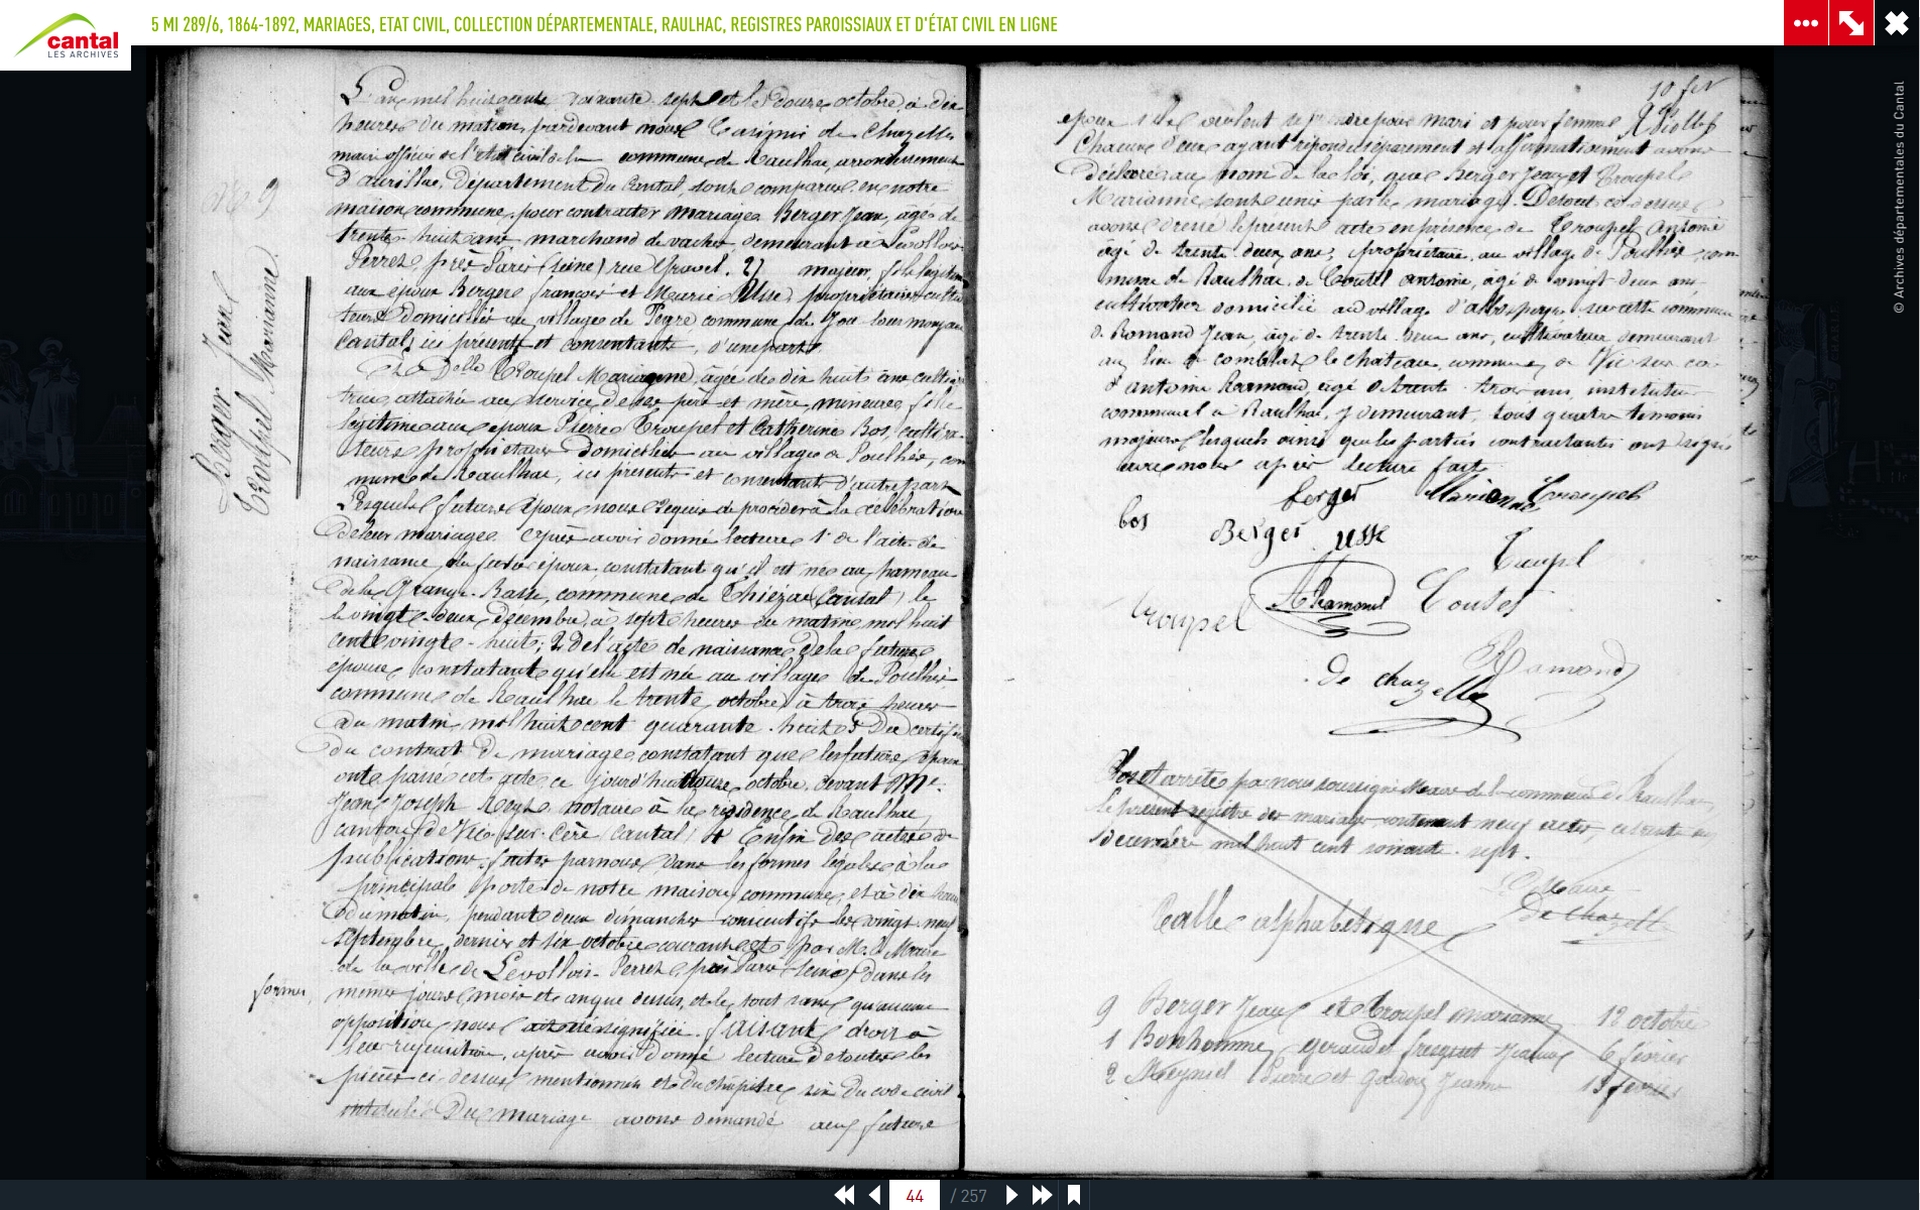 5 MI 289/6, 1864-1892, MARIAGES, ETAT CIVIL, COLLECTION DÉPARTEMENTALE, RAULHAC, REGISTRES PAROISSIAUX ET D'ÉTAT CIVIL EN LIGNE
cantal
LES ARCHIVES
© Archives départementales du Cantal
No 9
Berger Jean
Troupel Marianne
L'an mil huit cent soixante sept et le douze octobre, à dix
heures du matin, pardevant nous Casimir de Chazelles
maire officier de l'état civil de la commune de Raulhac, arrondissement
d'aurillac, Département du Cantal, sont comparus en notre
maison commune pour contracter mariage Berger Jean, âgé de
trente-huit ans, marchand de vaches, demeurant à Levallois
Perret, près Paris (seine) rue Gravel, 27 majeur, fils légitime
aux époux Berger françois et Marie Usse, propriétaires cultiva
teurs domiciliés au village de commune de Jou sous monjou
Cantal, ici présents et consentants, d'une part.
Et Delle Troupel Marianne, âgée de dix huit ans cultiva
trice, attachée au service de ses père et mère, mineure, fille
légitime aux époux Pierre Troupel et Catherine Bos, cultiva-
teurs propriétaires domiciliés au village de Poulhès, com
mune de Raulhac, ici présents et consentants d'autre part
Lesquels futurs époux nous requis de procéder à la célébration
de leur mariage. Après avoir donné lecture 1° de l'acte de
naissance du futur époux, constatant qu'il est né au hameau
de la Grange-Basse, commune de Thiézac (Cantal) le
le vingt-deux décembre, à sept heures du matin, mil huit
cent vingt-huit; 2° de l'acte de naissance de la future
épouse constatant qu'elle est née au village de Poulhès,
commune de Raulhac le trente octobre à trois heures
du matin, mil huit cent quarante-huit 3° Du certificat
du contrat de mariage constatant que les futurs époux
ont passé cet acte ce jourd'hui douze octobre, devant Me
Jean Joseph notaire à la résidence de Raulhac
canton de Vic-sur-Cère (Cantal) 4° Enfin des actes de
publications faites par nous dans les formes légales à la
principale porte de notre maison commune, et à dix heures
du matin, pendant deux dimanches consécutifs les vingt neuf
septembre dernier et six octobre courant et par M. le Maire
de la ville de Levallois-Perret, près Paris (seine) dans les
formes,
mêmes jours mois et an que dessus, et le tout sans qu'aucune
opposition nous ait été signifiée. faisant droit à
leur réquisition, après avoir donné lecture de toutes les
pièces ci-dessus mentionnées et du chapitre six du code civil
intitulé Du mariage avons demandé aux futurs
époux s'ils veulent se prendre pour mari et pour femme
Chacun d'eux ayant répondu séparément et affirmativement avons
Déclaré au nom de la loi, que Berger Jean et Troupel
Marianne sont unis par le mariage. De tout ce dessus
avons dressé le présent acte en présence de Troupel Antoine
âgé de trente deux ans, propriétaire, au village de Poulhès com
mune de Raulhac, de Coutel antoine, âgé de vingt-deux ans
cultivateur domicilié au village sus cette commune
de Romand Jean, âgé de trente deux ans, cultivateur demeurant
au lieu de comblat le chateau, commune de Vic sur cère
d'antoine Ramond, âgé de trente trois ans, instituteur
communal à Raulhac, y demeurant, tous quatre témoins
majeurs lesquels ainsi que les parties contractantes ont signé
avec nous après lecture faite
berger Marianne Troupel
bos Berger usse
Troupel
Troupel ARamond Coutel
Ramond
De chazelles
Clos et arrêté par nous soussigné Maire de la commune de Raulhac
le présent registre des mariages contenant neuf actes, ce trente un
décembre mil huit cent soixante-sept.
Le Maire
De Chazelles
Table alphabétique
9 Berger Jean et Troupel marianne 12 octobre
1 Bonhomme geraud et fresquet Jeanne 6 février
2 Meyniel Pierre et Jeanne 13 février
44 / 257